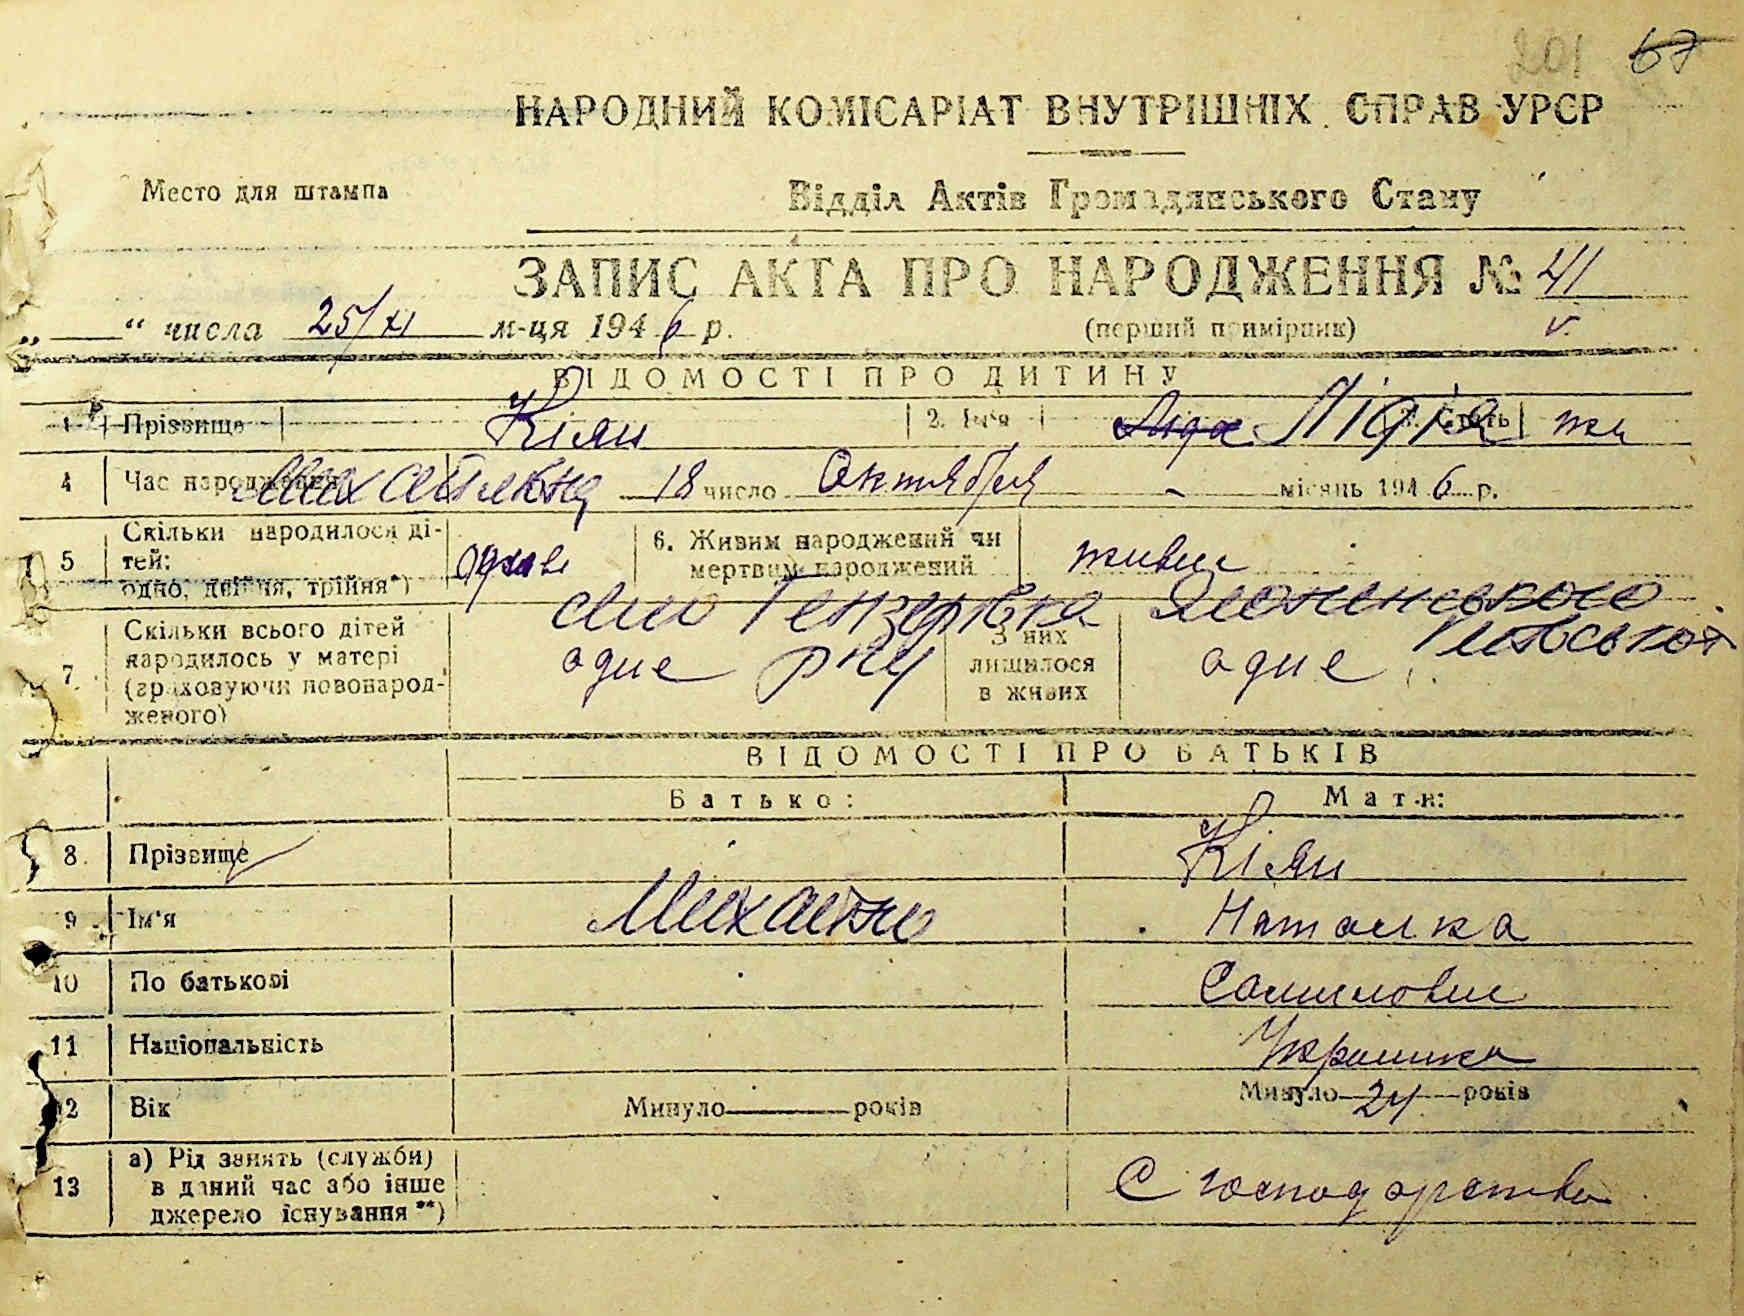 201 67
НАРОДНИЙ КОМІСАРІАТ ВНУТРІШНІХ СПРАВ УРСР
Место для штампа
Відділ Актів Громадянського Стану
ЗАПИС АКТА ПРО НАРОДЖЕННЯ № 41
„ “ числа 25/XI м-ця 1946 р.
(перший примірник) V.
ВІДОМОСТІ ПРО ДИТИНУ
1 Прізвище Кіян 2. Ім'я Лида Лідія Стать жн
4 Час народження Михайлівна 18 число Октября місяць 1946 р.
5 Скільки народилося ді-
тей:
одно, двійня, трійня*)
6. Живим народжений чи
мертвим народжений
село Гензерівка
7. Скільки всього дітей
народилось у матері
(враховуючи новонарод-
женого)
одне
З них
лишилося
в живих
одне
ВІДОМОСТІ ПРО БАТЬКІВ
Батько: Мати:
8. Прізвище Кіян
9 Ім'я Михайло Наталка
10 По батькові
11 Національність Украинка
12 Вік Минуло — років Минуло 24 років
13 а) Рід занять (служби)
в даний час або інше
джерело існування**)
С господарство